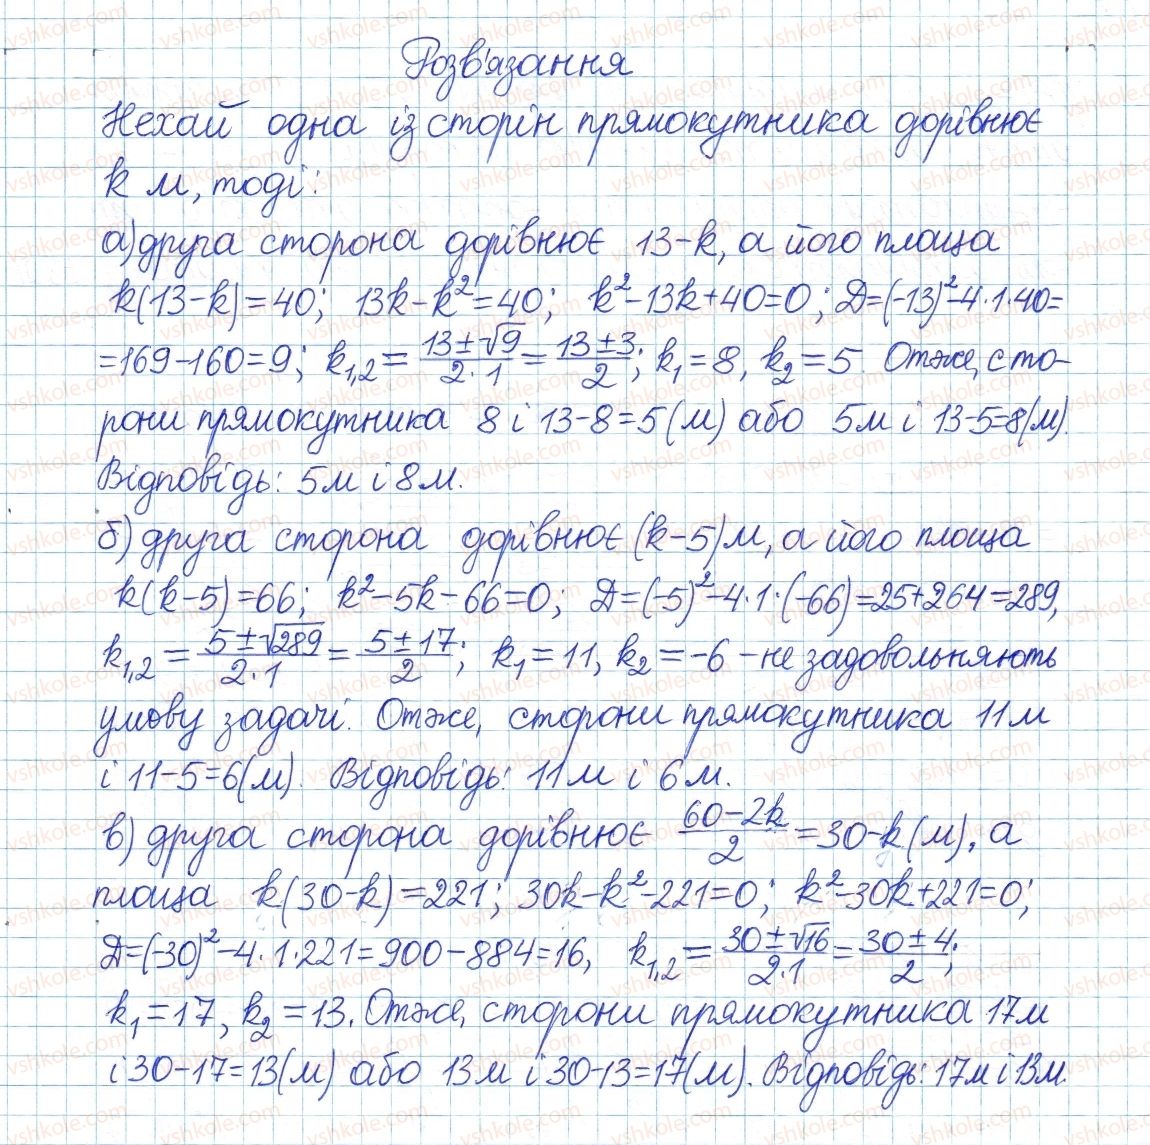 Розв'язання
Нехай одна із сторін прямокутника дорівнює
k м, тоді:
а) друга сторона дорівнює 13-k, а його площа
k(13-k)=40; 13k-k²=40; k²-13k+40=0; Д=(-13)²-4·1·40=
=169-160=9; k₁,₂ = (13±√9)/(2·1) = (13±3)/2; k₁=8, k₂=5. Отже, сто-
рони прямокутника 8 і 13-8=5(м) або 5м і 13-5=8(м).
Відповідь: 5м і 8м.
б) друга сторона дорівнює (k-5)м, а його площа
k(k-5)=66; k²-5k-66=0; Д=(-5)²-4·1·(-66)=25+264=289,
k₁,₂ = (5±√289)/(2·1) = (5±17)/2; k₁=11, k₂=-6 - не задовольняють
умову задачі. Отже, сторони прямокутника 11м
і 11-5=6(м). Відповідь: 11м і 6м.
в) друга сторона дорівнює (60-2k)/2 = 30-k(м), а
площа k(30-k)=221; 30k-k²-221=0; k²-30k+221=0;
Д=(-30)²-4·1·221=900-884=16, k₁,₂ = (30±√16)/(2·1) = (30±4)/2;
k₁=17, k₂=13. Отже, сторони прямокутника 17м
і 30-17=13(м) або 13м і 30-13=17(м). Відповідь: 17м і 13м.
vshkole.com